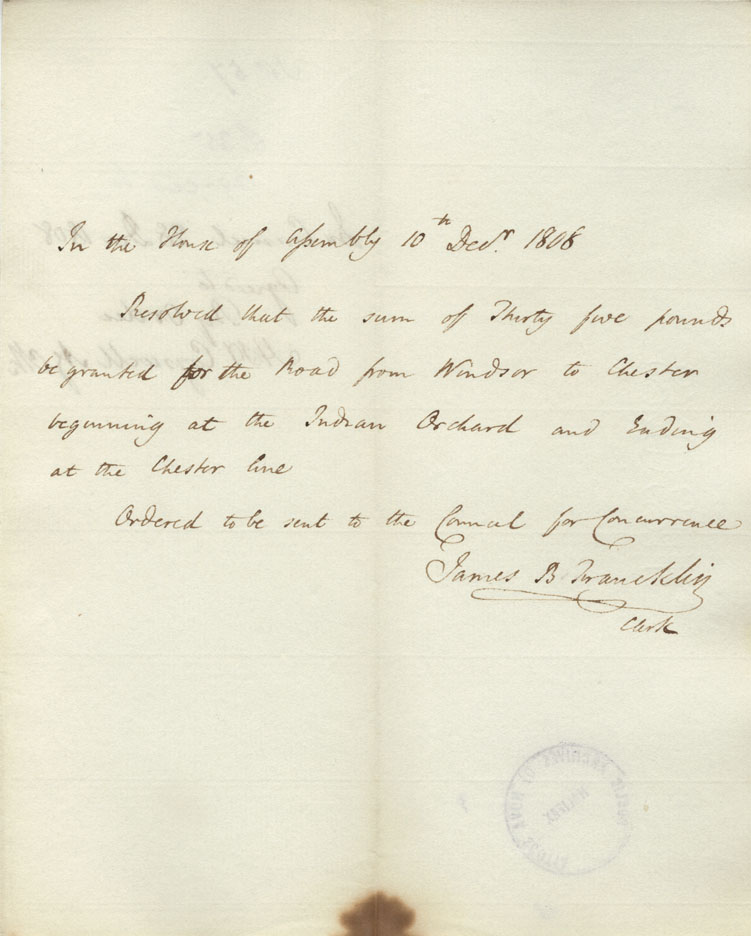 In the House of Assembly 10th Decr. 1808
Resolved that the sum of Thirty five pounds
be granted for the Road from Windsor to Chester
beginning at the Indian Orchard and Ending
at the Chester line
Ordered to be sent to the Council for Concurrence
James B Francklin
Clerk
PUBLIC ARCHIVES OF NOVA SCOTIA
HALIFAX